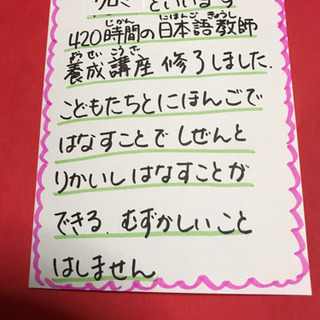 といいます
420時間の日本語教師
養成講座修了しました.
こどもたちとにほんごで
はなすことでしぜんと
りかいしはなすことが
できる.むずかしいこと
はしません